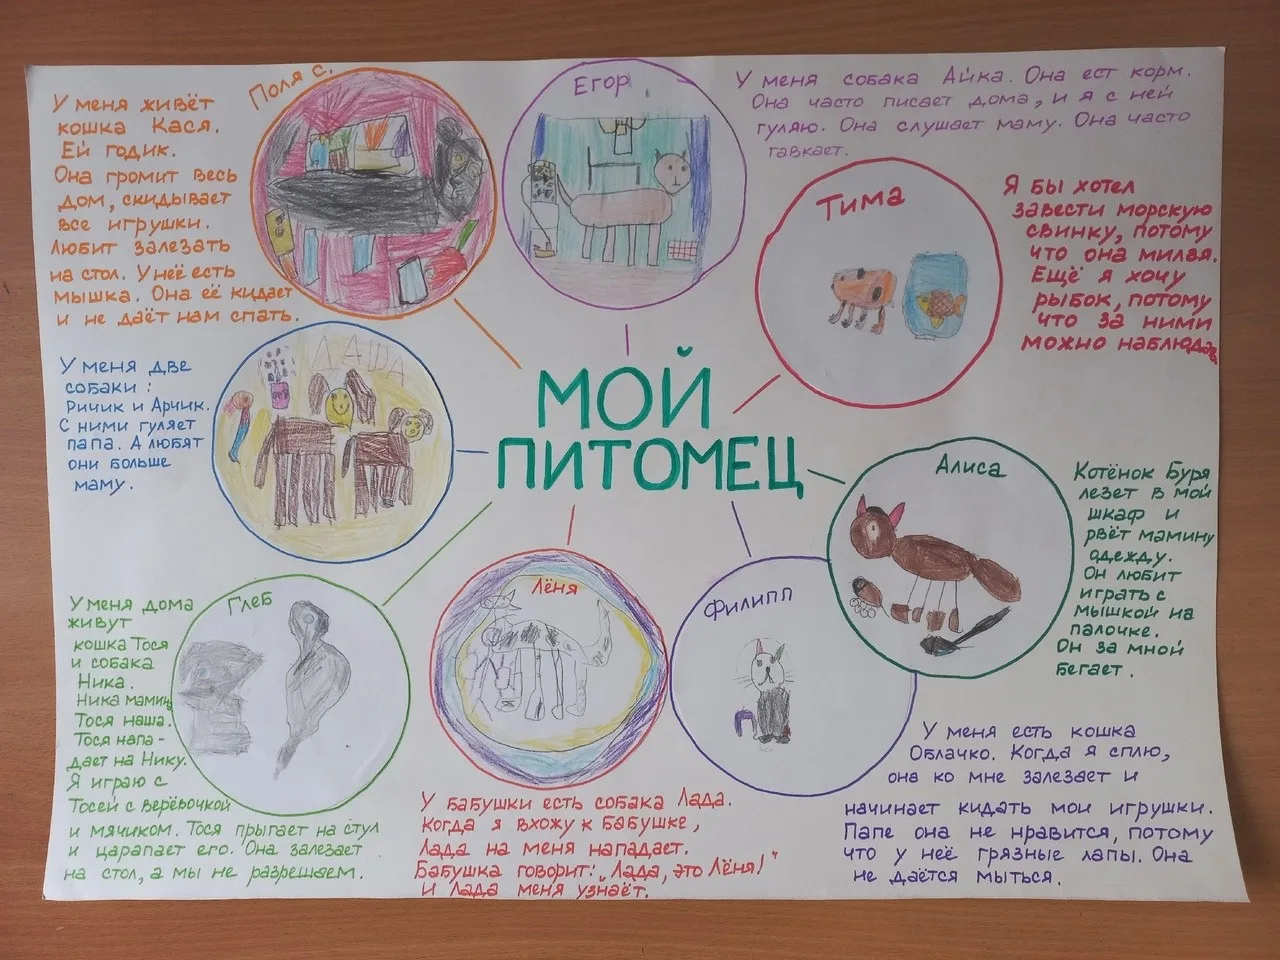 МОЙ
ПИТОМЕЦ
Поля С.
У меня живёт
кошка Кася.
Ей годик.
Она громит весь
дом, скидывает
все игрушки.
Любит залезать
на стол. У неё есть
мышка. Она её кидает
и не даёт нам спать.
Егор
У меня собака Айка. Она ест корм.
Она часто писает дома, и я с ней
гуляю. Она слушает маму. Она часто
гавкает.
Тима
Я бы хотел
завести морскую
свинку, потому
что она милая.
Ещё я хочу
рыбок, потому
что за ними
можно наблюдать
Алиса
Котёнок Буря
лезет в мой
шкаф и
рвёт мамину
одежду.
Он любит
играть с
мышкой на
палочке.
Он за мной
бегает.
Филипп
У меня есть кошка
Облачко. Когда я сплю,
она ко мне залезает и
начинает кидать мои игрушки.
Папе она не нравится, потому
что у неё грязные лапы. Она
не даётся мыться.
Лёня
У бабушки есть собака Лада.
Когда я вхожу к бабушке,
Лада на меня нападает.
Бабушка говорит: „Лада, это Лёня!"
и Лада меня узнаёт.
Глеб
У меня дома
живут
кошка Тося
и собака
Ника.
Ника мамина,
Тося наша.
Тося напа-
дает на Нику.
Я играю с
Тосей с верёвочкой
и мячиком. Тося прыгает на стул
и царапает его. Она залезает
на стол, а мы не разрешаем.
У меня две
собаки:
Ричик и Арчик.
С ними гуляет
папа. А любят
они больше
маму.